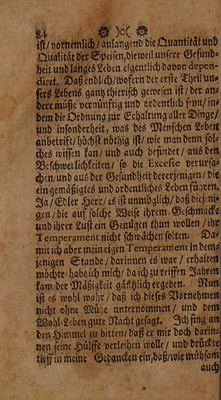 84
ist / vornemlich / anlangend die Quantität und
Qualität der Speisen, dieweil unsere Gesund-
heit und langes Leben eigentlich davon depen-
diret. Daß endlich / wofern der erste Theil un-
sers Lebens gantz thierisch gewesen ist / der an-
dere müsse vernünftig und ordentlich seyn / in-
dem die Ordnung zur Erhaltung aller Dinge /
und insonderheit, was des Menschen Leben
anbetrift / höchst nöthig ist / wie man denn sol-
ches wissen kan / und auch befindet / aus den
Beschwerlichkeiten / so die Excesse verursa-
chen / und aus der Gesundheit dererjenigen / die
ein gemäßigtes und ordentliches Leben führen.
Ja / Edler Herr / es ist unmöglich / daß diejeni-
gen / die auf solche Weise ihrem Geschmacke
und ihrer Lust ein Genügen thun wollen / ihr
Temperament nicht schwächen solten. Da-
mit ich aber mein eigen Temperament in dem-
jenigen Stande / darinnen es war / erhalten
möchte / habe ich mich / da ich zu reiffen Jahren
kam / der Mäßigkeit gäntzlich ergeben. Nun
ist es wohl wahr / daß ich dieses Vornehmen
nicht ohne Mühe unternommen / und dem
Wohl-Leben gute Nacht gesagt. Ich fing an
den Himmel zu bitten / daß er mir doch darin-
nen seine Hülffe verleihen wolle / und drückte
tieff in meine Gedancken ein / daß / wie mühsam
auch